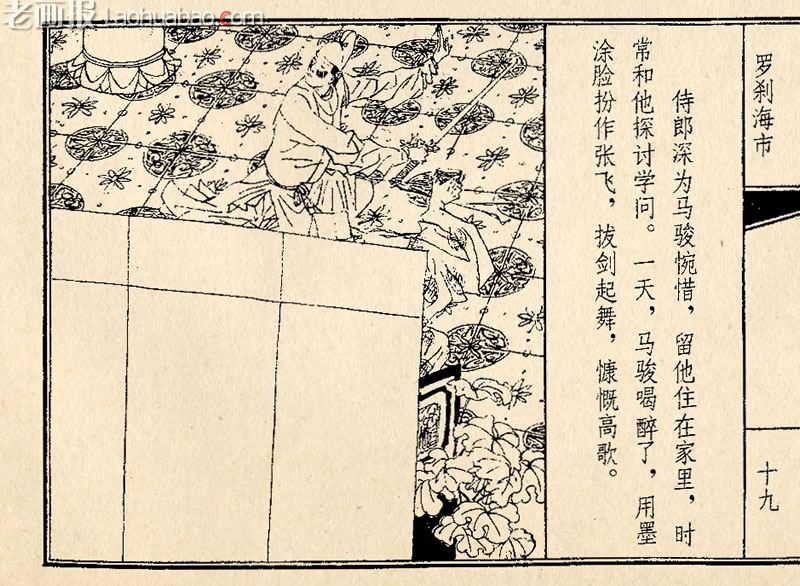 老画报 Laohuabao.com
罗刹海市
十九
侍郎深为马骏惋惜，留他住在家里，时
常和他探讨学问。一天，马骏喝醉了，用墨
涂脸扮作张飞，拔剑起舞，慷慨高歌。